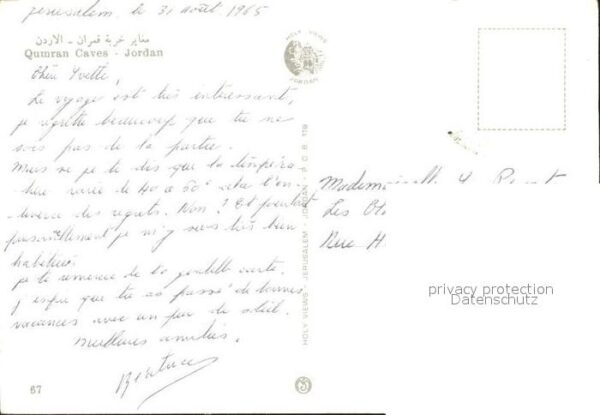 Jerusalem, le 31 août 1965
مغاير خربة قمران - الاردن
Qumran Caves - Jordan
Chère Yvette,
Le voyage est très intéressant,
je regrette beaucoup que tu ne
sois pas de la partie.
Mais si je te dis que la tempéra-
ture varie de 40 à 50°
des regrets. Non ! Et pourtant
personnellement je m'y sens très bien
habituée.
Je te remercie de la gentille carte.
J'espère que tu as passé de bonnes
vacances avec un peu de soleil.
Meilleures amitiés.
67
HOLY VIEWS
JORDAN
HOLY VIEWS - JERUSALEM - JORDAN - P.O.B. 119
Mademoiselle Y.
Les
Rue H
privacy protection
Datenschutz